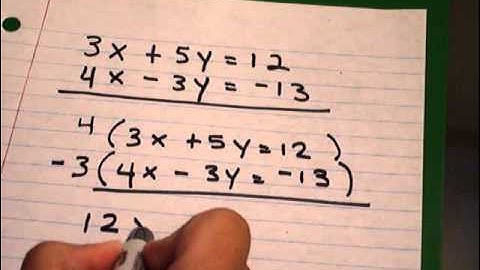 3x + 5y = 12
4x - 3y = -13
4(3x + 5y = 12)
-3(4x - 3y = -13)
12